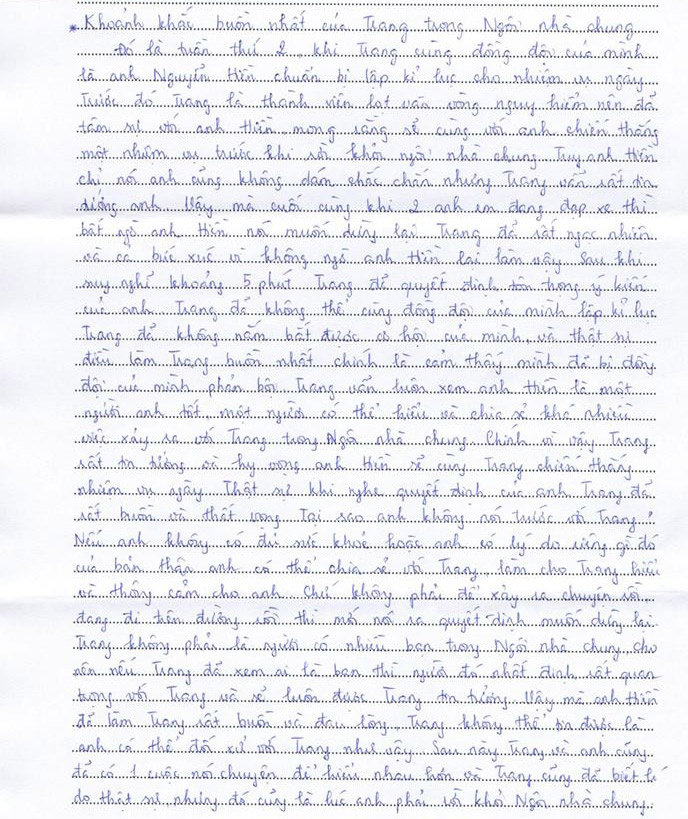 * Khoảnh khắc buồn nhất của Trang trong Ngôi nhà chung
Đó là tuần thứ 2, khi Trang cùng đồng đội của mình
là anh Nguyễn Hiền chuẩn bị lập kỉ lục cho nhiệm vụ ngày
Trước đó Trang là thành viên lọt vào vòng nguy hiểm nên đã
tâm sự với anh Hiền, mong rằng sẽ cùng với anh chiến thắng
một nhiệm vụ trước khi rời khỏi ngôi nhà chung. Tuy anh Hiền
chỉ nói anh cũng không dám chắc chắn nhưng Trang vẫn rất tin
tưởng anh. Vậy mà cuối cùng khi 2 anh em đang đạp xe thì
bất ngờ anh Hiền nói muốn dừng lại Trang đã rất ngạc nhiên
và cả bức xúc vì không ngờ anh Hiền lại làm vậy. Sau khi
suy nghĩ khoảng 5 phút Trang đã quyết định tôn trọng ý kiến
của anh. Trang đã không thể cùng đồng đội của mình lập kỉ lục
Trang đã không nắm bắt được cơ hội của mình, và thật sự
điều làm Trang buồn nhất chính là cảm thấy mình đã bị đồng
đội của mình phản bội. Trang vẫn luôn xem anh Hiền là một
người anh tốt, một người có thể hiểu và chia sẻ khá nhiều
việc xảy ra với Trang trong Ngôi nhà chung. Chính vì vậy Trang
rất tin tưởng và hy vọng anh Hiền sẽ cùng Trang chiến thắng
nhiệm vụ ngày. Thật sự khi nghe quyết định của anh Trang đã
rất buồn và thất vọng. Tại sao anh không nói trước với Trang?
Nếu anh không có đủ sức khoẻ hoặc anh có lý do riêng gì đó
của bản thân anh có thể chia sẻ với Trang, làm cho Trang hiểu
và thông cảm cho anh. Chứ không phải để xảy ra chuyện rồi,
đang đi trên đường rồi thì mới nói ra quyết định muốn dừng lại.
Trang không phải là người có nhiều bạn trong Ngôi nhà chung, cho
nên nếu Trang đã xem ai là bạn thì người đó nhất định rất quan
trọng với Trang và sẽ luôn được Trang tin tưởng. Vậy mà anh Hiền
đã làm Trang rất buồn và đau lòng, Trang không thể tin được là
anh có thể đối xử với Trang như vậy. Sau này Trang và anh cũng
đã có 1 cuộc nói chuyện để hiểu nhau hơn và Trang cũng đã biết lí
do thật sự, nhưng đó cũng là lúc anh phải rời khỏi Ngôi nhà chung.